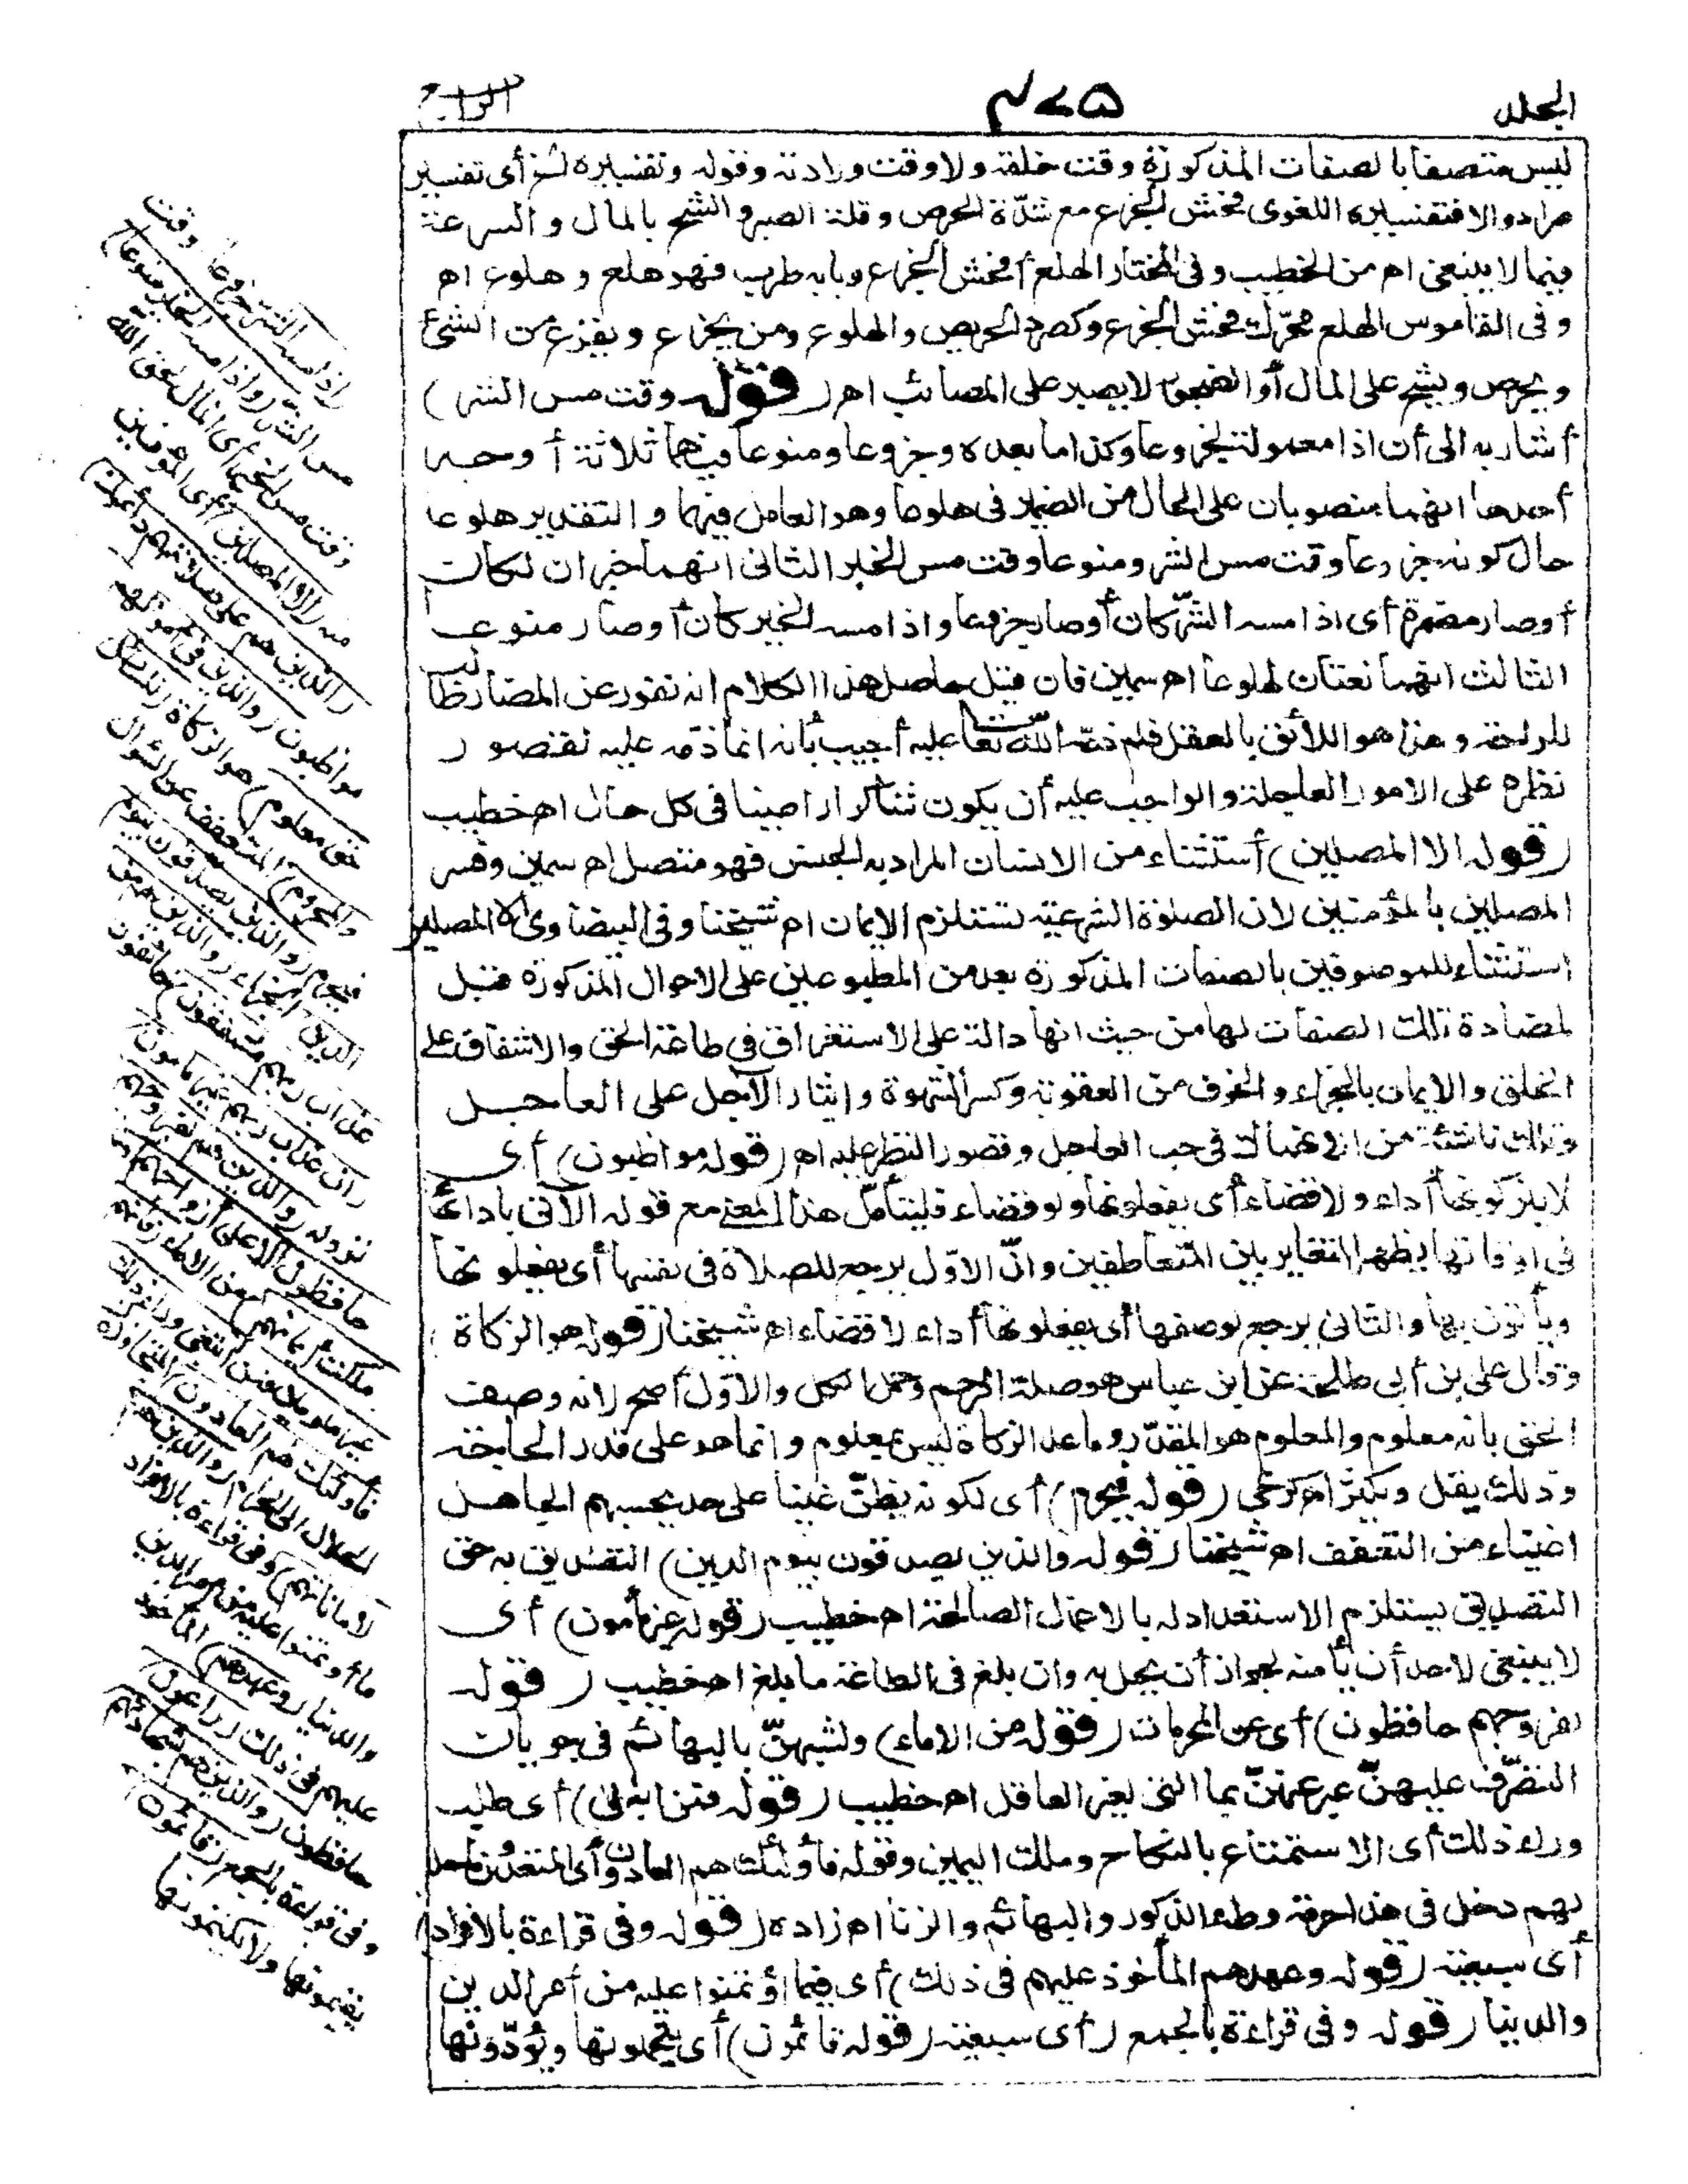 المجلد
٤٧٥
الرابع
ليس متصفا بالصفات المذكورة وقت خلقه ولا وقت ولادته وقوله وتفسيره لشر أى تفسير
مراد والا فتفسيره اللغوى فحش الجزع مع شدّة الحرص وقلة الصبر والشح بالمال والسرعة
فيما لا ينبغى اه من الخطيب وفى المختار الهلع أفحش الجزع وبابه طرب فهو هلع وهلوع اه
وفى القاموس الهلع محرّك فحش الجزع وكصرد الحريص والهلوع ومن يجزع ويفزع من الشئ
ويحرص ويشح على المال أو الضجور لا يصبر على المصائب اه (قوله وقت مس الشر)
أشار به الى أن اذا معمولة لجزوعا وكذا ما بعده وجزوعا ومنوعا فيهما ثلاثة أوجه
أحدها انهما منصوبان على الحال من الضمير فى هلوعا وهو العامل فيهما والتقدير هلوعا
حال كونه جزوعا وقت مس الشر ومنوعا وقت مس الخير الثانى انهما خبران لكان
أو صار مضمرة أى اذا مسه الشرّ كان أو صار جزوعا واذا مسه الخير كان أو صار منوعا
الثالث انهما نعتان لهلوعا اه سمين فان قيل حاصل هذا الكلام انه نفور عن المضار طالب
للراحة وهذا هو اللائق بالعقل فلم ذمّه اللّه تعالى عليه أجيب بأنه انما ذمّه عليه لقصور
نظره على الامور العاجلة والواجب عليه أن يكون شاكرا راضيا فى كل حال اه خطيب
(قوله الا المصلين) أستثناء من الانسان المراد به الجنس فهو متصل اه سمين وفسر
المصلين بالمؤمنين لان الصلوة الشرعية تستلزم الايمان اه شيخنا وفى البيضاوى الا المصلين
استثناء للموصوفين بالصفات المذكورة بعد من المطبوعين على الاحوال المذكورة قبل
لمضادة تلك الصفات لها من حيث انها دالة على الاستغراق فى طاعة الحق والاشفاق على
الخلق والايمان بالجزاء والخوف من العقوبة وكسر الشهوة وايثار الآجل على العاجل
وتلك ناشئة من الانهماك فى حب العاجل وقصور النظر عليه اه (قوله مواظبون) أى
لا يتركونها أداء ولا قضاء أى يفعلونها ولو قضاء فليتأمّل هذا المعنى مع قوله الآتى بادائها
فى اوقاتها يظهر التغاير بين المتعاطفين وانّ الاوّل يرجع للصلاة فى نفسها أى يفعلونها
ويأتون بها والثانى يرجع لوصفها أى يفعلونها أداء لا قضاء اه شيخنا (قوله هو الزكاة)
وقال على بن أبى طلحة عن ابن عباس هو صلة الرحم وحمل الكل والاوّل أصح لانه وصف
الحق بانه معلوم والمعلوم هو المقدّر وما عدا الزكاة ليس بمعلوم وانما هو على قدر الحاجة
وذلك يقل ويكثر اه كرخى (قوله فيحرم) أى لكونه يظنّ غنيا على حد يحسبهم الجاهل
اغنياء من التعفف اه شيخنا (قوله والذين يصدقون بيوم الدين) التصديق به حق
التصديق يستلزم الاستعداد له بالاعمال الصالحة اه خطيب (قوله غير مأمون) أى
لا ينبغى لاحد أن يأمنه لجواز أن يحل به وان بلغ فى الطاعة ما بلغ اه خطيب (قوله
لفروجهم حافظون) أى عن المحرمات (قوله من الاماء) ولشبهنّ بالبهائم فى جريان
التصرّف عليهنّ عبر عنهنّ بما التى لغير العاقل اه خطيب (قوله فمن ابتغى) أى طلب
وراء ذلك أى الاستمتاع بالنكاح وملك اليمين وقوله فأولئك هم العادون أى المتعدون
لهم دخل فى هذا حرمة وطء الذكور والبهائم والزنا اه زاده (قوله وفى قراءة بالافراد)
أى سبعية (قوله وعهدهم المأخوذ عليهم فى ذلك) أى فيما اؤتمنوا عليه من أمر الدين
والدنيا (قوله وفى قراءة بالجمع) أى سبعية (قوله قائمون) أى يتحملونها ويؤدّونها
(اذا مسه الشر جزوعا) وقت
مس الشرّ (واذا مسه الخير منوعا)
وقت مس الخير أى المال لحق اللّه
منه (الا المصلين) أى المؤمنين
(الذين هم على صلاتهم دائمون)
مواظبون (والذين فى أموالهم
حق معلوم) هو الزكاة (للسائل
والمحروم) المتعفف عن السؤال
فيحرم (والذين يصدقون بيوم
الدين) الجزاء (والذين هم من
عذاب ربهم مشفقون) خائفون
(ان عذاب ربهم غير مأمون)
نزوله (والذين هم لفروجهم
حافظون الا على أزواجهم أو ما
ملكت أيمانهم) من الاماء (فانهم
غير ملومين فمن ابتغى وراء ذلك
فأولئك هم العادون) المتجاوزون
الحلال الى الحرام (والذين هم
لأماناتهم) وفى قراءة بالافراد
ما أؤتمنوا عليه من أمر الدين
والدنيا (وعهدهم) المأخوذ
عليهم فى ذلك (راعون)
حافظون (والذين هم بشهادتهم)
وفى قراءة بالجمع (قائمون)
يقيمونها ولا يكتمونها